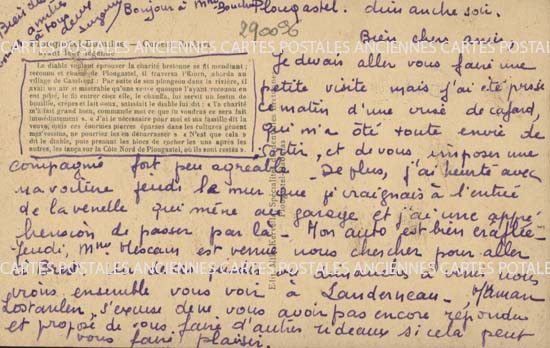 Bien des
amitiés
à tous
deux
Bonjour à Mme
Plougastel. dim anche soir.
2900%
Bien chers amis,
Je devais aller vous faire une
petite visite mais j'ai été prise
ce matin d'une crise de cafard,
qui m'a ôté toute envie de
sortir, et de vous imposer une
ayant leur légende
Le diable voulant éprouver la charité bretonne se fit mendiant;
reconnu et chassé de Plougastel, il traversa l'Elorn, aborda au
village de Par suite de son plongeon dans la rivière, il
avait un air si misérable qu'une veuve quoique l'ayant reconnu en
eut pitié, le fit entrer chez elle, le chauffa, lui servit un festin de
bouillie, crêpes et lait cuit, satisfait le diable lui dit : « Ta charité
m'a fait grand bien, commande moi ce que tu voudras ce sera fait
immédiatement ». « J'ai le nécessaire pour moi et ma famille dit la
veuve, mais ces énormes pierres éparses dans les cultures gênent
mes voisins, ne pourrais tu les en débarrasser » « N'est que cela »
dit le diable, puis prenant les blocs de rocher les uns après les
autres, les lança sur la Côte Nord de Plougastel, où ils sont restés ».
compagnie fort peu agréable. De plus, j'ai heurté avec
ma voiture jeudi le mur que je craignais à l'entrée
de la venelle qui mène au garage et j'ai une appré
hension de passer par là. Mon auto est bien éraflée
Jeudi, Mme Mescam est venue nous chercher pour aller
à Brest. Un de ces jeudis ou dimanches à venir nous
irons ensemble vous voir à Landerneau.
s'excuse de ne vous avoir pas encore répondu
et propose de vous faire d'autres rideaux si cela peut
vous faire plaisir.
CARTES POSTALES ANCIENNES CARTES POSTALES ANCIENNES CARTES POSTALES